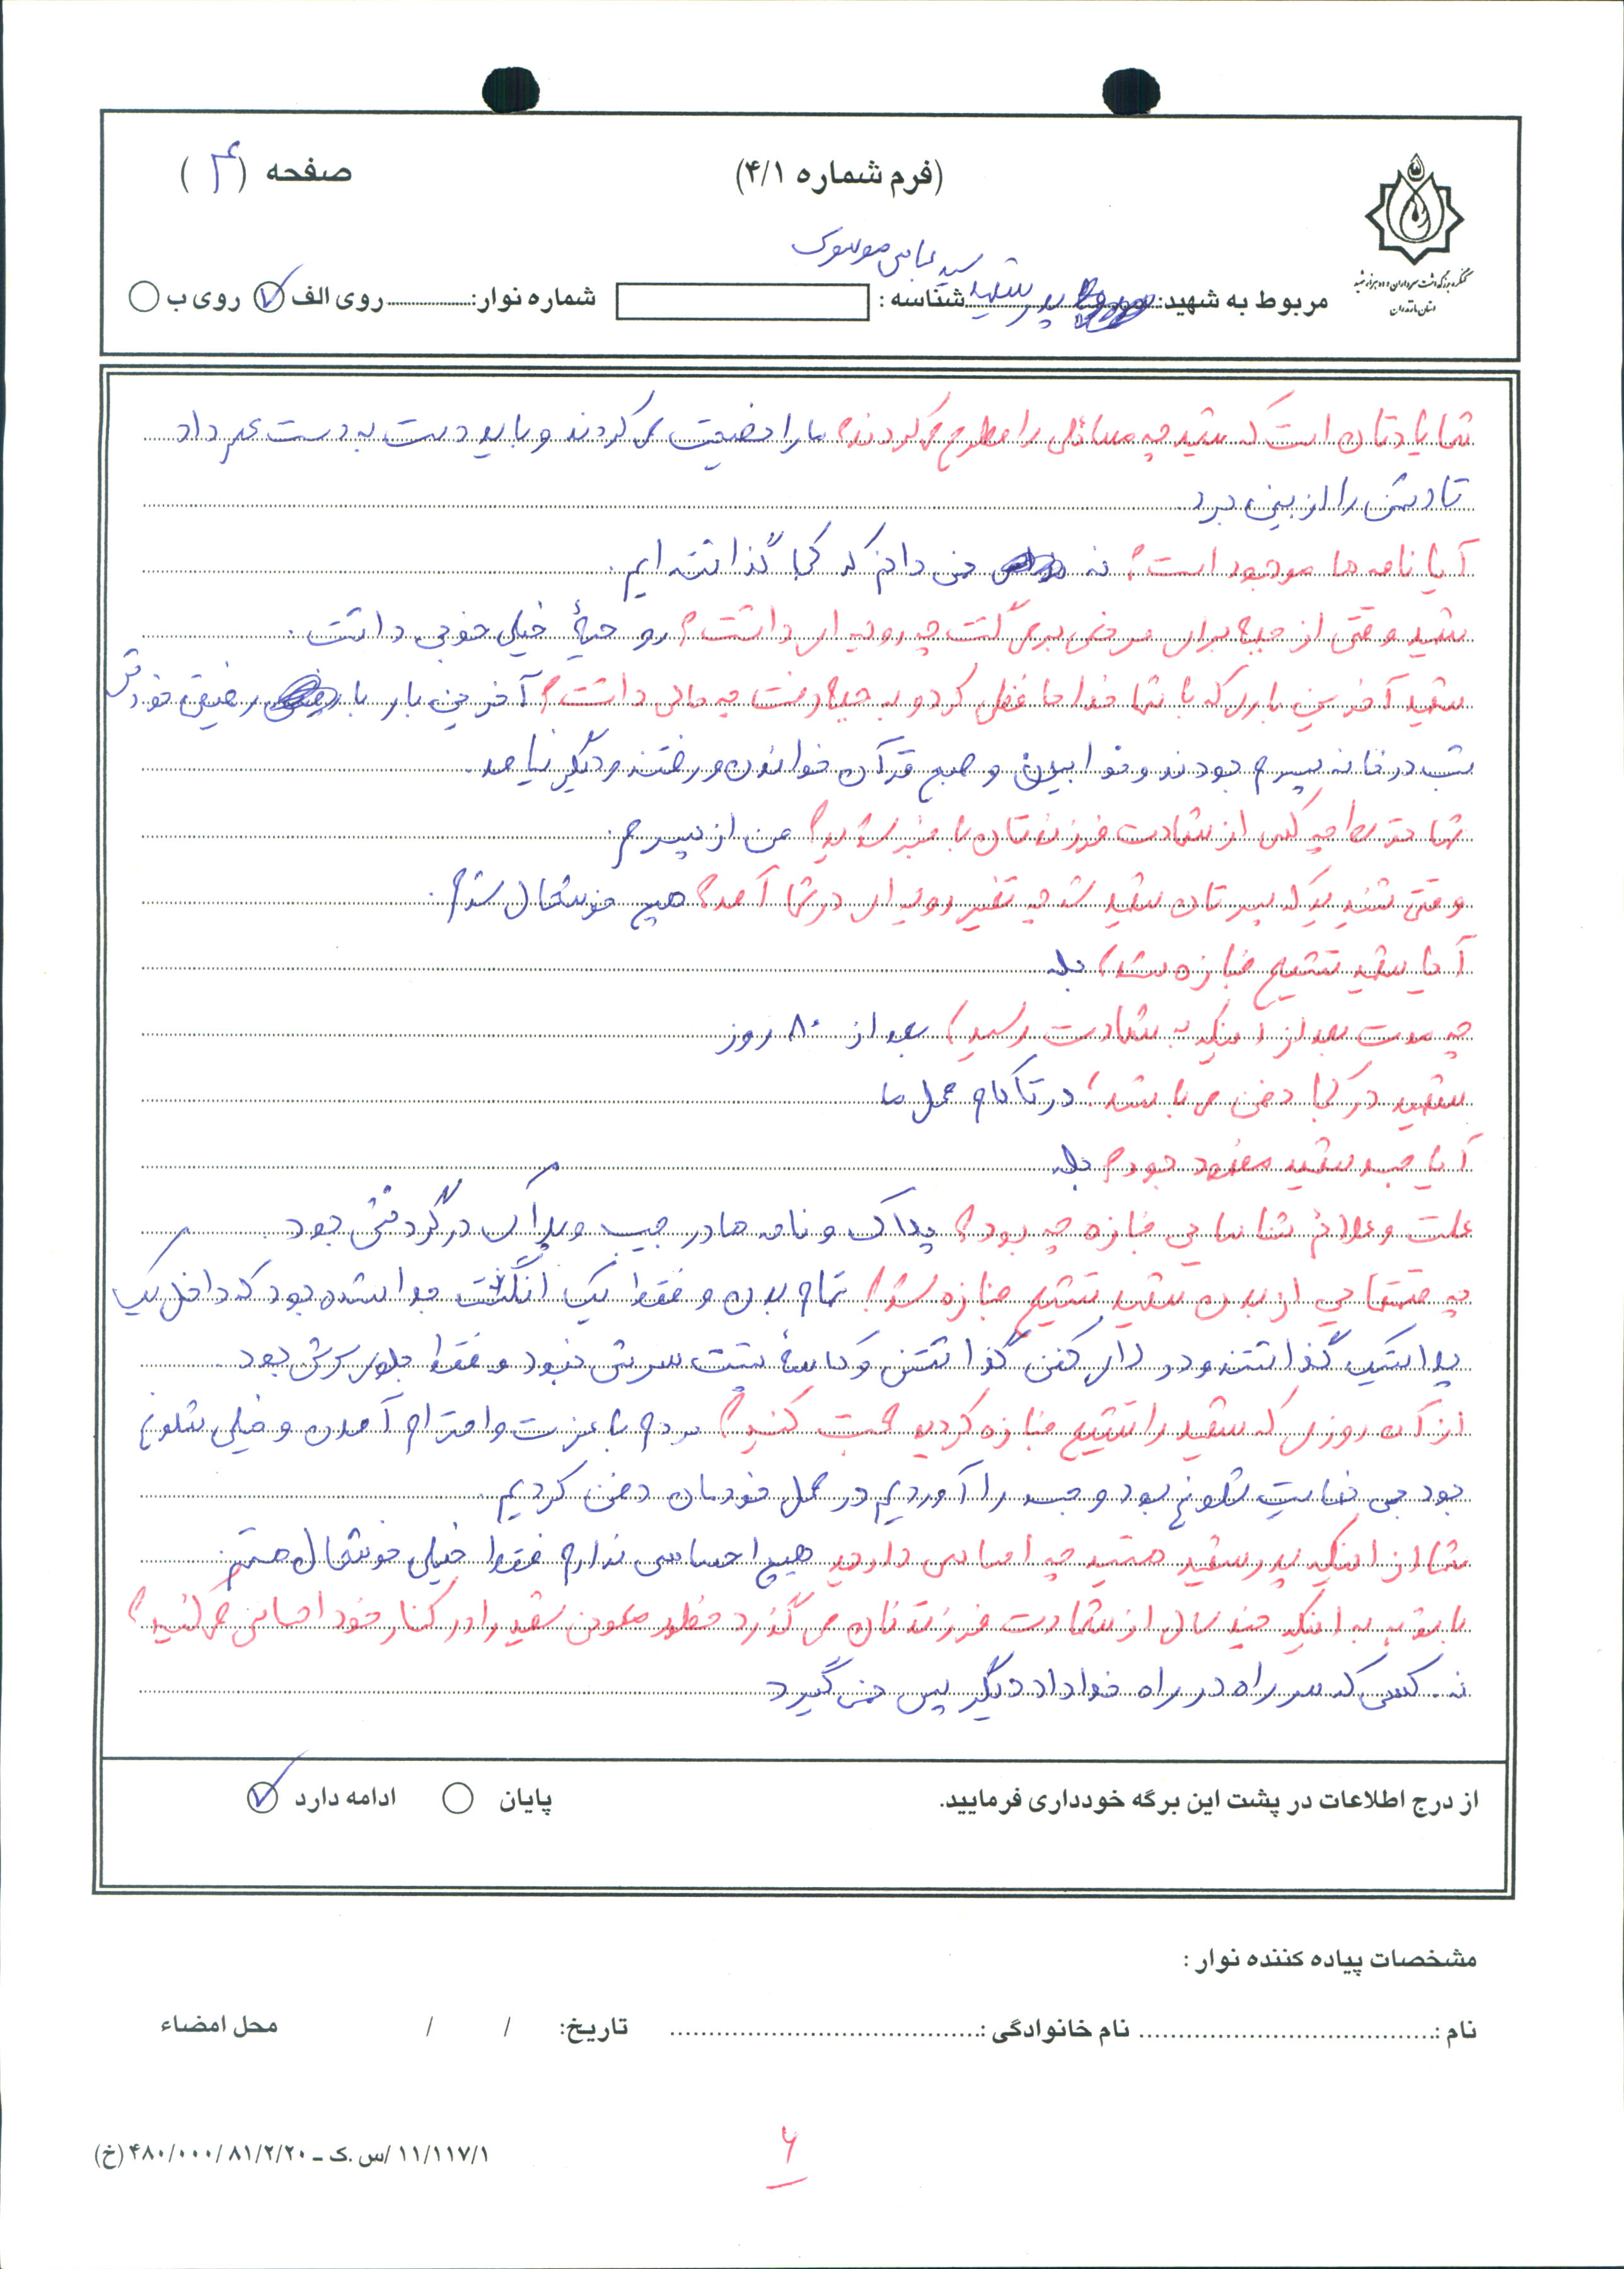 (فرم شماره ۴/۱)
صفحه (۴)
کنگره بزرگداشت سرداران و ده هزار شهید
استان مازندران
سید عباس موسوی
مربوط به شهید: پدر شهید شناسه : شماره نوار: روی الف روی ب
شما یادتان است که شهید چه مسائلی را مطرح می کردند؟ ما را نصیحت می کردند و باید دست به دست هم داد
تا دشمن را از بین برد
آیا نامه ها موجود است؟ نه نمی دانم که کجا گذاشته ایم.
شهید وقتی از جبهه برای مرخصی بر می گشت چه روحیه ای داشت؟ روحیهٔ خیلی خوبی داشت.
شهید آخرین باری که با شما خداحافظی کرد و به جبهه رفت چه حالی داشت؟ آخرین بار با رفیق خودش
شب در خانه پسرم بودند و خوابیدن و صبح قرآن خواندن و رفتند و دیگر نیامد.
شما توسط چه کسی از شهادت فرزندتان با خبر شدید؟ من از پسرم.
وقتی شنیدید که پسرتان شهید شد چه تغییر روحیه ای در شما آمد؟ هیچ خوشحال شدم.
آیا شهید تشییع جنازه شد؟ بله
چه مدت بعد از اینکه به شهادت رسید؟ بعد از ۸۰ روز
شهید در کجا دفن می باشد؟ در تاکام محل ما
آیا جسد شهید مفقود بود؟ بله
علت و علائم شناسایی جنازه چه بود؟ پلاک و نامه ها در جیب و پلاک در گردنش بود.
چه قسمتهایی از بدن شهید تشییع جنازه شد؟ تمام بدن و فقط یک انگشت جدا شده بود که داخل یک
پلاستیک گذاشتند و در داخل کفن گذاشتن و کاسهٔ پشت سرش نبود و فقط جلوی سرش بود.
از آن روزی که شهید را تشییع جنازه کردید صحبت کنید؟ مردم با عزت و احترام آمدن و خیلی شلوغ
بود بی نهایت شلوغ بود و جسد را آوردیم در محل خودمان دفن کردیم.
شما از اینکه پدر شهید هستید چه احساسی دارید هیچ احساسی ندارم فقط خیلی خوشحال هستم.
با توجه به اینکه چند سال از شهادت فرزندتان می گذرد حضور معنوی شهید را در کنار خود احساس می کنید؟
نه. کسی که سر راه در راه خدا داد دیگر پس نمی گیرد
از درج اطلاعات در پشت این برگه خودداری فرمایید. پایان ادامه دارد
مشخصات پیاده کننده نوار :
نام : نام خانوادگی : تاریخ: / / محل امضاء
۶
۱۱/۱۱۷/۱ /س.ک ـ ۴۸۰/۰۰۰/ ۸۱/۲/۲۰ (خ)